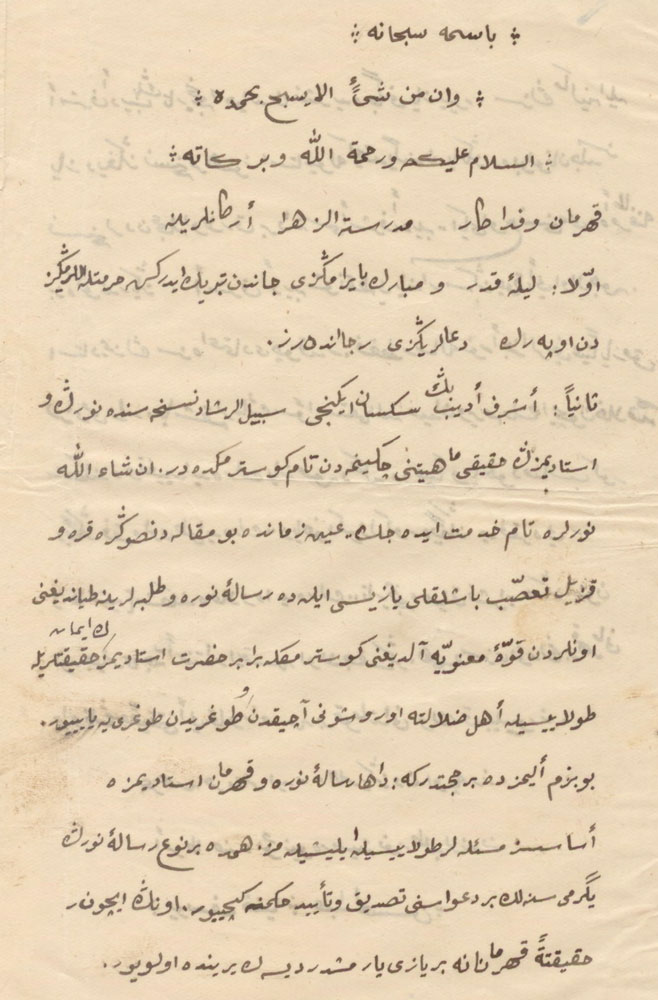 باسمه سبحانه
وان من شئ الا يسبح بحمده
السلام عليكم ورحمة الله وبركاته
قهرمان وفداكار مدرسة الزهرا أركانلرينه
اوّلا: ليلهٔ قدر و مبارك بايرامڭزى جاندن تبريك ايدركن حرمتله اللريڭز
دن اوپه رك دعالريڭزى رجا ايده رز.
ثانياً: أشرف أديب بڭ سكسان ايكنجى سبيل الرشاد نسخه سنده نورڭ و
استاديمزڭ حقيقى ماهيتنى چكينمه دن تام كوسترمكده در. ان شاء الله
نورلره تام خدمت ايده جك. عين زمانده بو مقاله دن صوڭره قره و
قزيل تعصّب باشلقلى يازيسى ايله ده رسالهٔ نوره و طلبه لرينه طياندیغنى
اونلردن قوّهٔ معنويّه آلديغنى كوسترمكله برابر حضرت استاديمزڭ ايمان حقيقتلريله
طولاييسيله أهل ضلالته اورو شونى آچيقدن و طوغريدن طوغرى يه ياپييور.
بو بزم أليمزده بر حجتدركه: داها رسالهٔ نوره و قهرمان استاديمزه
أساسسز مسئله لر طولاييسيله ايليشيله مز. همده بر نوع رسالهٔ نورڭ
يڭرمى سنه لك بر دعواسنى تصديق و تأييد حكمنه كچييور. اونڭ ايچون
حقيقةً قهرمانانه بر يازى يازمشدر ديسه ك يرينده اولويور.